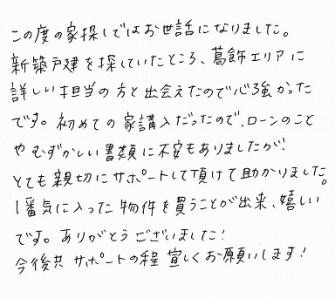 この度の家探しではお世話になりました。
新築戸建を探していたところ、葛飾エリアに
詳しい担当の方と出会えたので心強かった
です。初めての家購入だったので、ローンのこと
やむずかしい書類に不安もありましたが、
とても親切にサポートして頂けて助かりました。
1番気に入った物件を買うことが出来、嬉しい
です。ありがとうございました!
今後共サポートの程宜しくお願いします!